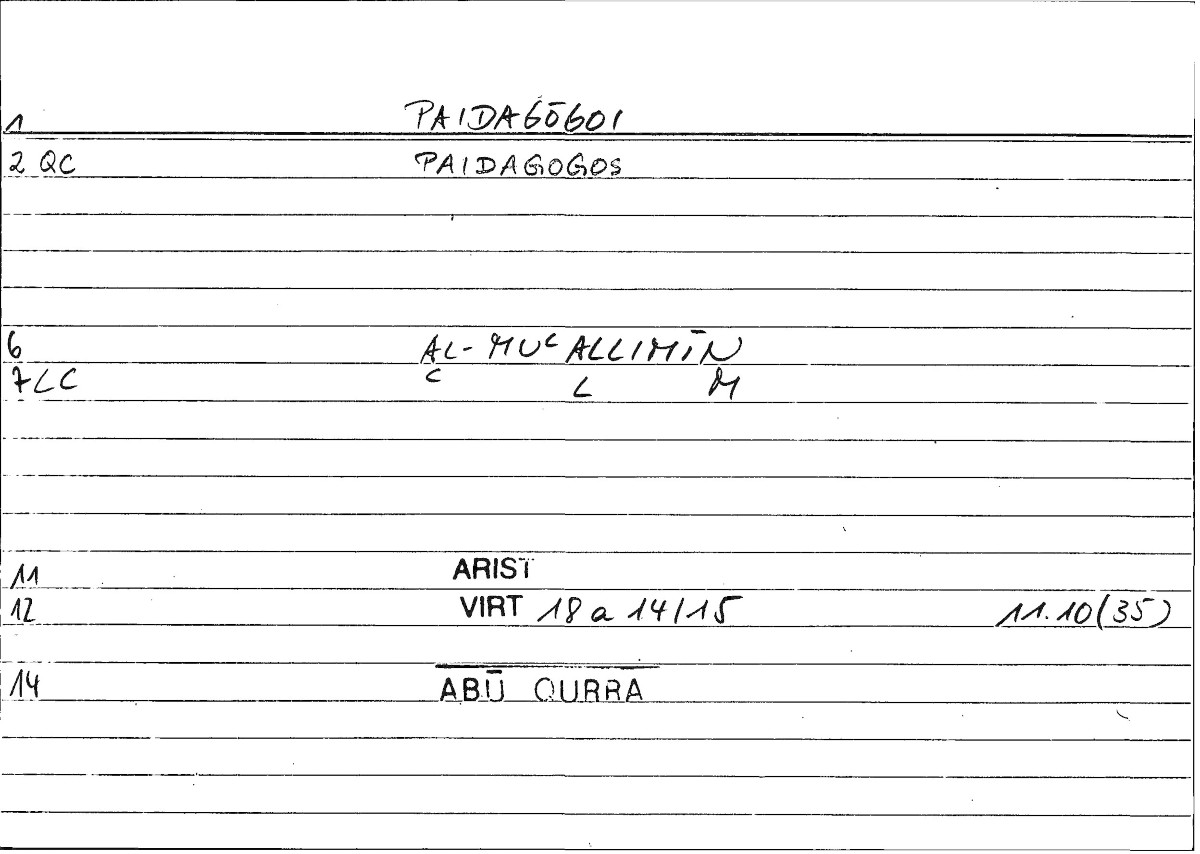 1 PAIDAGŌGOI
2 QC PAIDAGOGOS
6 AL-MUᶜALLIMĪN
7 LC ᶜ L M
11 ARIST
12 VIRT 18 a 14/15 11.10(35)
14 ABŪ QURRA